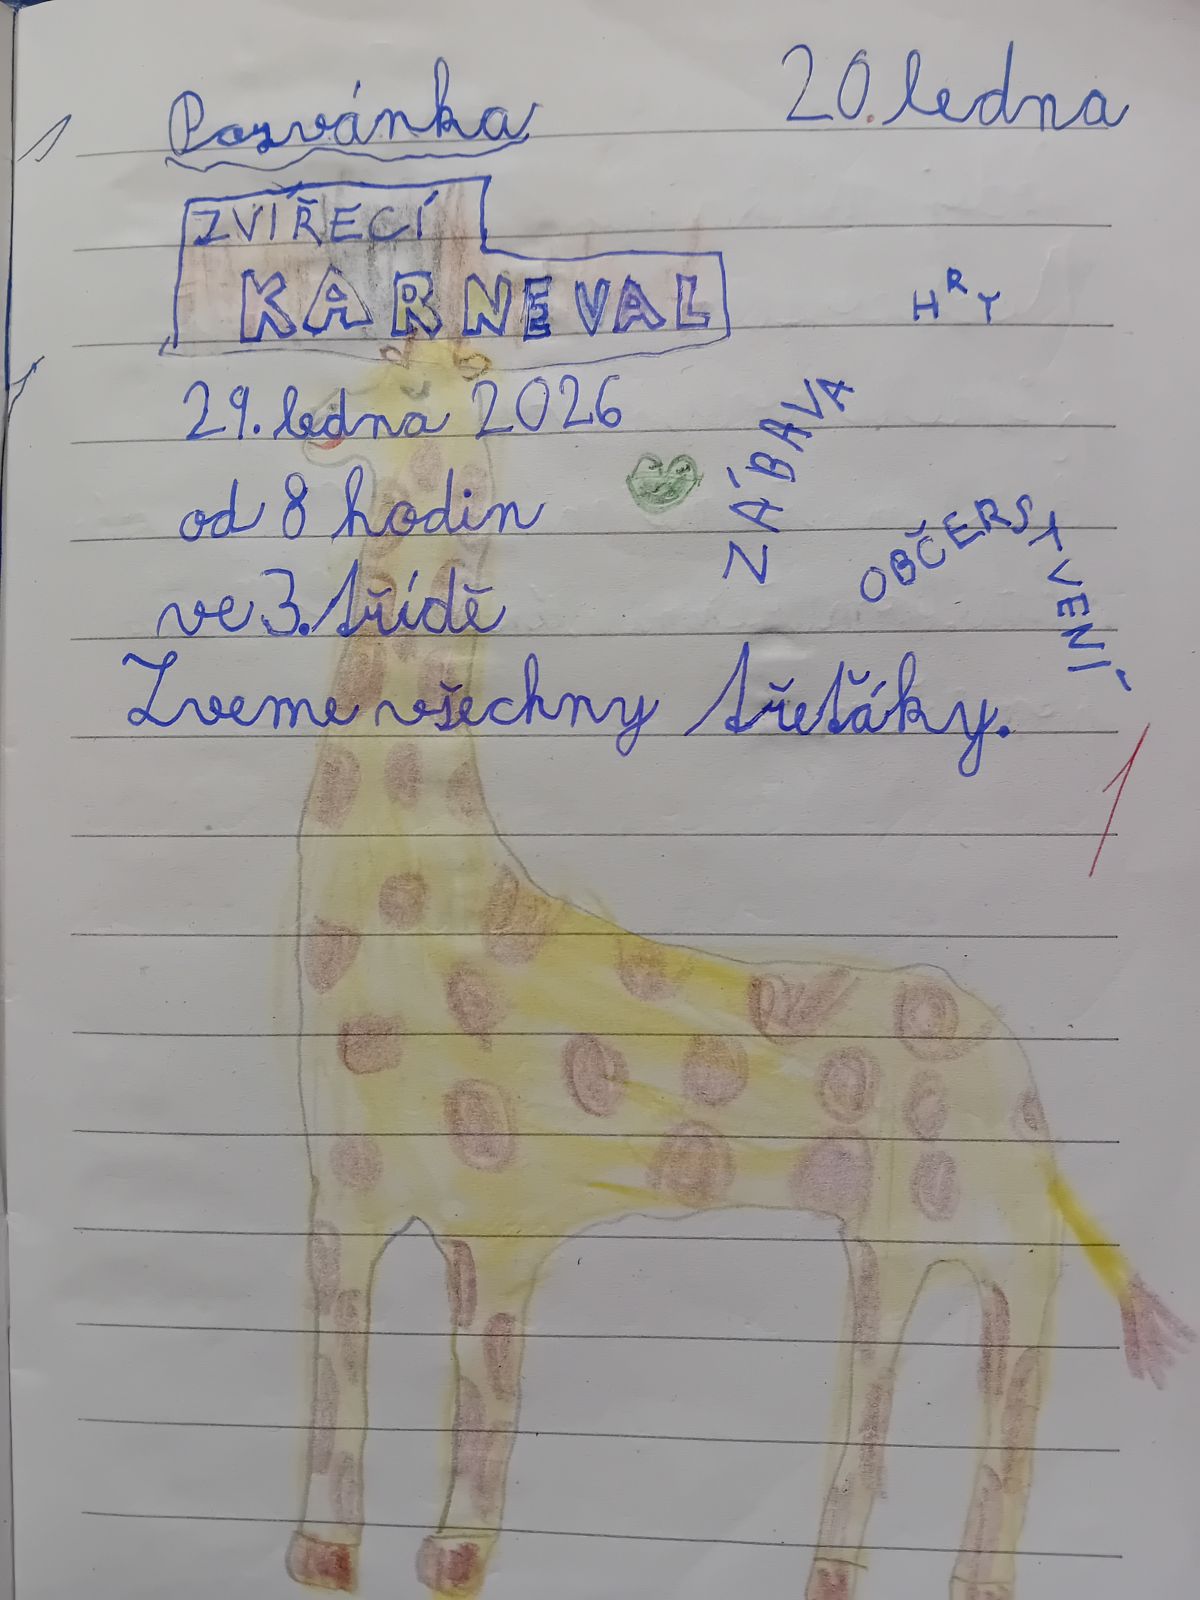 20. ledna
Pozvánka
ZVÍŘECÍ
KARNEVAL
HRY
29. ledna 2026
ZÁBAVA
od 8 hodin
OBČERSTVENÍ
ve 3. třídě
Zveme všechny třeťáky.
1